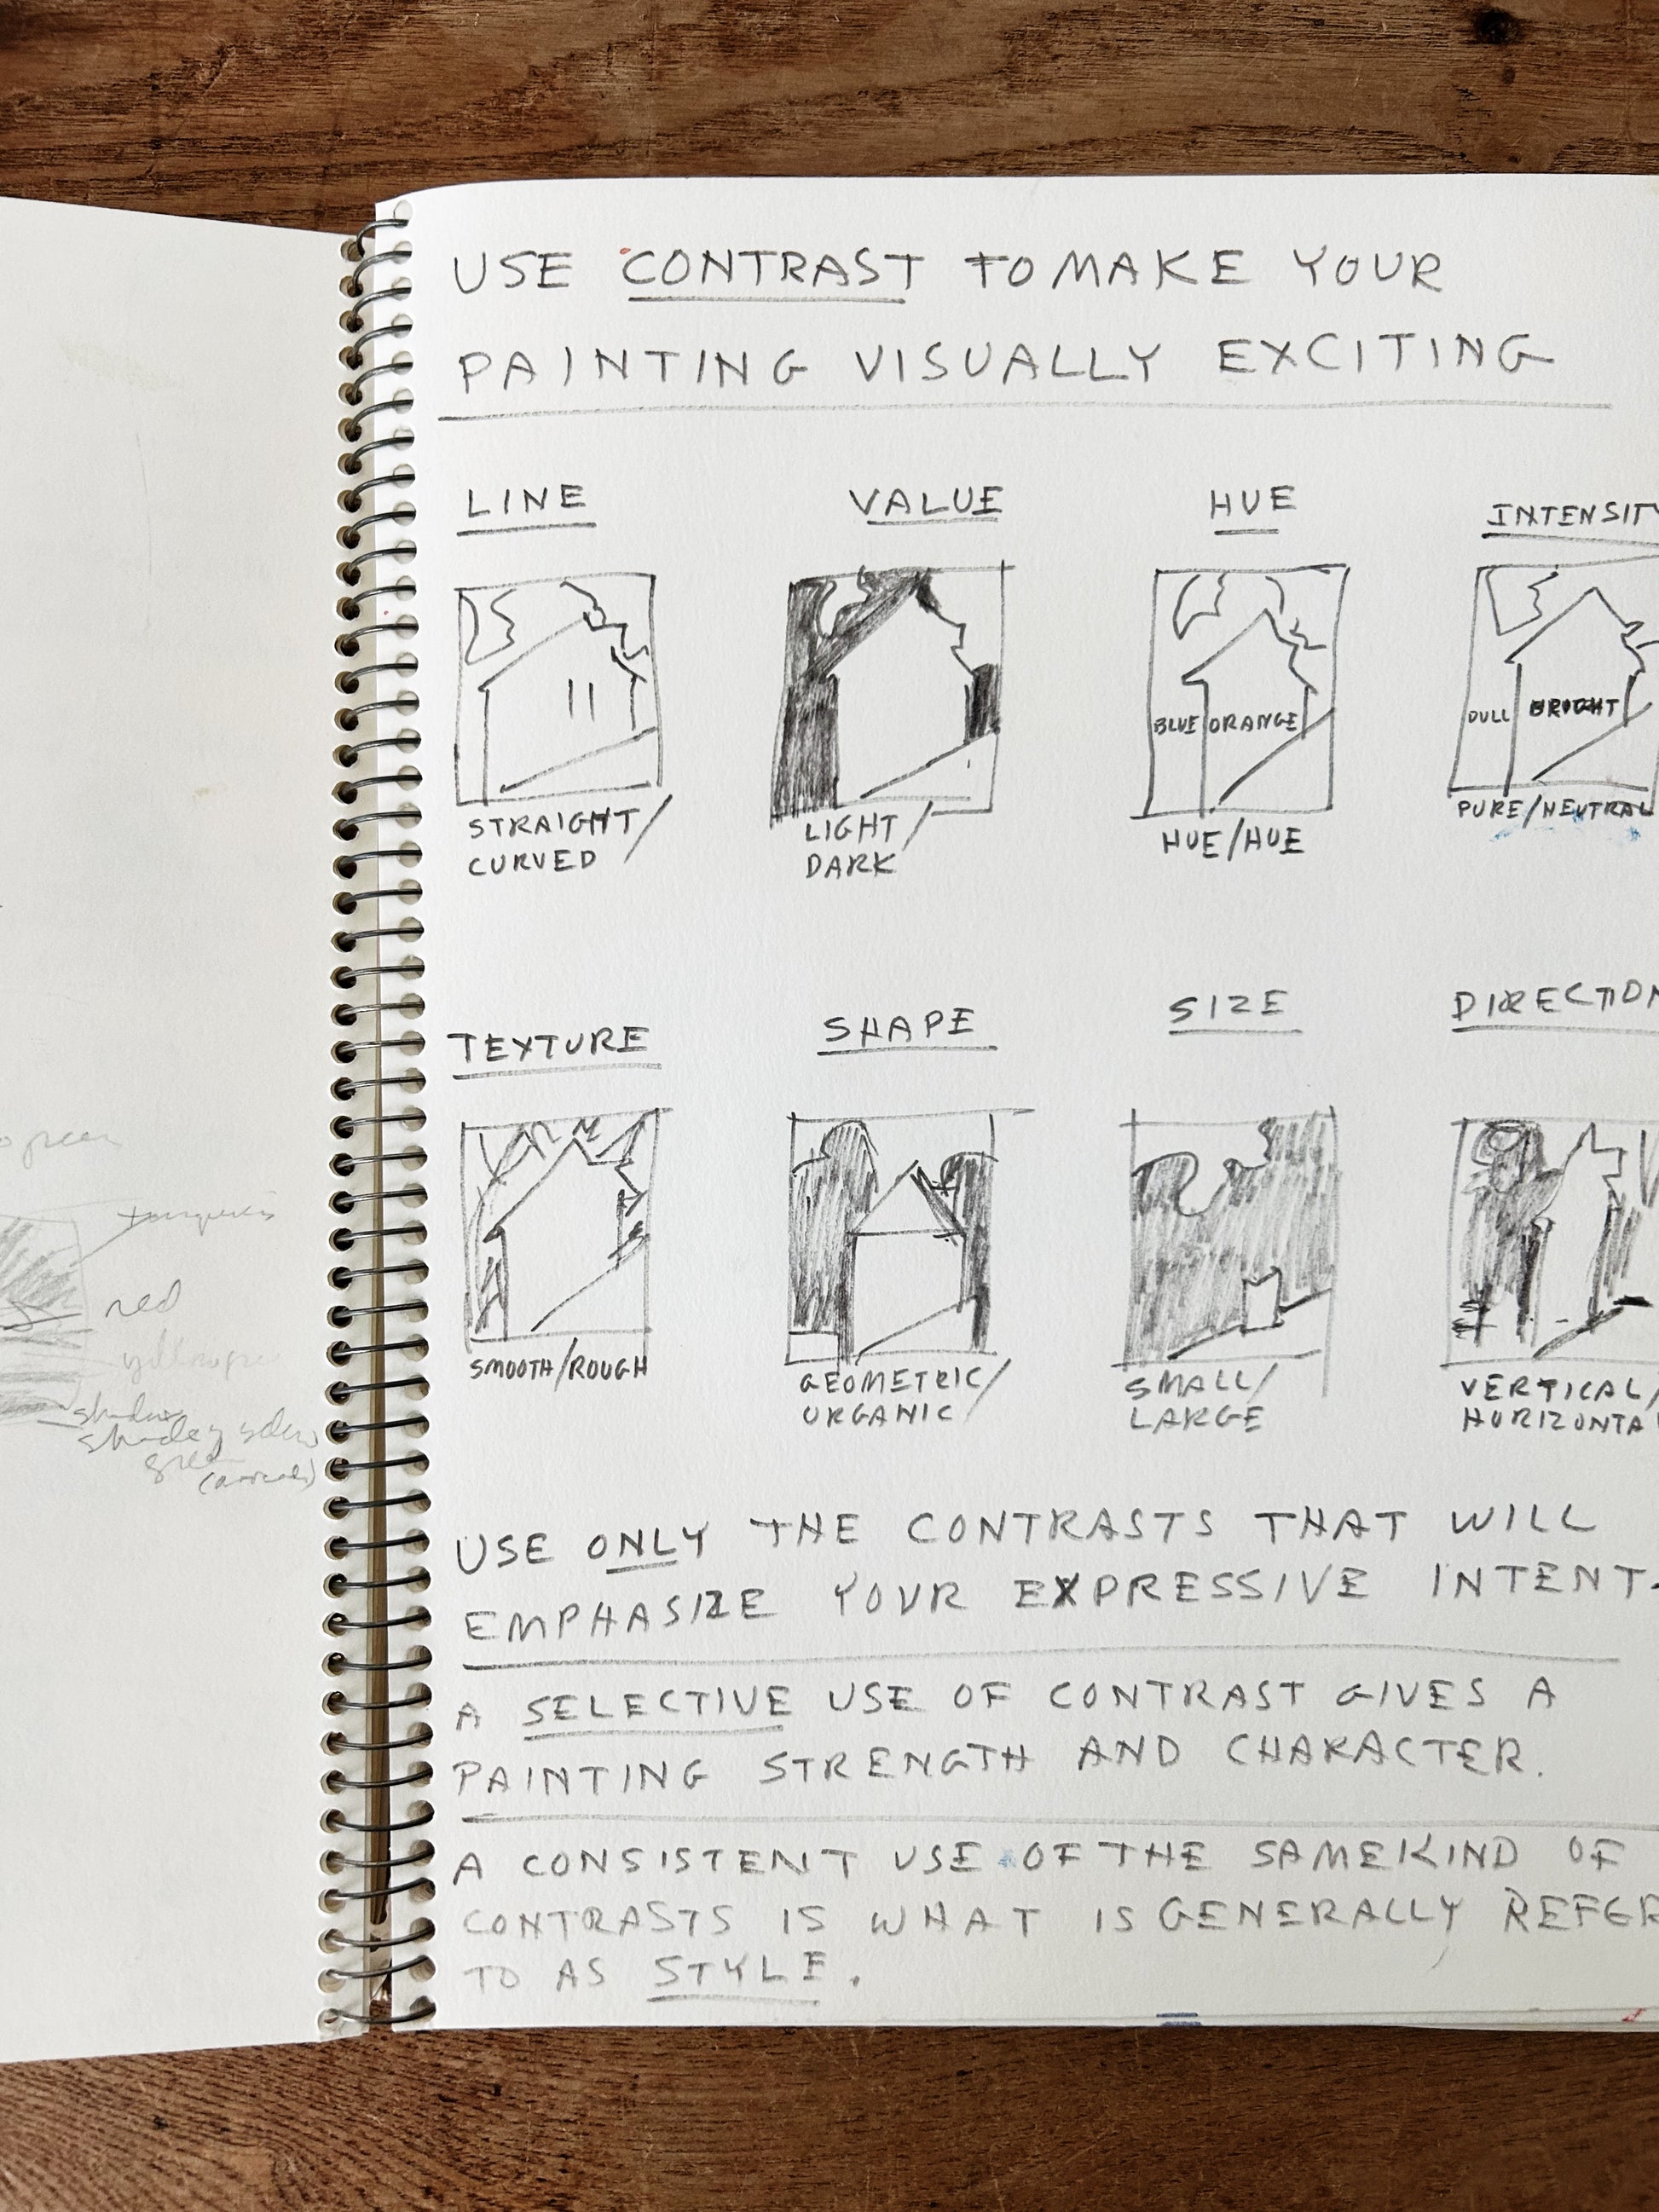 USE CONTRAST TO MAKE YOUR
PAINTING VISUALLY EXCITING
LINE
VALUE
HUE
INTENSITY
BLUE
ORANGE
DULL
BRIGHT
STRAIGHT/
CURVED
LIGHT/
DARK
HUE/HUE
PURE/NEUTRAL
TEXTURE
SHAPE
SIZE
DIRECTION
SMOOTH/ROUGH
GEOMETRIC/
ORGANIC
SMALL/
LARGE
VERTICAL/
HORIZONTA
USE ONLY THE CONTRASTS THAT WILL
EMPHASIZE YOUR EXPRESSIVE INTENT.
A SELECTIVE USE OF CONTRAST GIVES A
PAINTING STRENGTH AND CHARACTER.
A CONSISTENT USE OF THE SAME KIND OF
CONTRASTS IS WHAT IS GENERALLY REFER
TO AS STYLE.
green
red